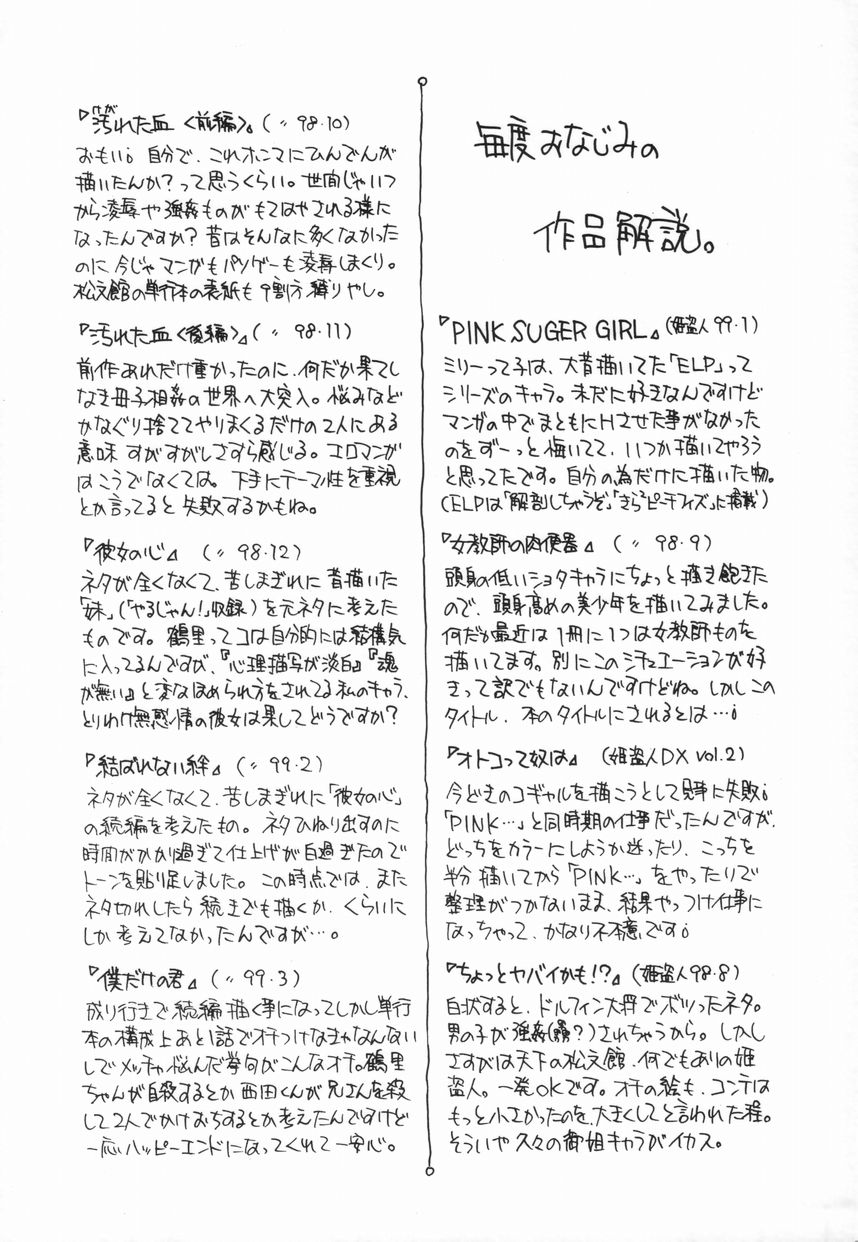 毎度おなじみの
作品解説。
『PINK SUGER GIRL』(姫盗人 99・1)
ミリーって子は、大昔描いてた「ELP」って
シリーズのキャラ。未だに好きなんですけど
マンガの中でまともにHさせた事がなかった
のをずーっと悔いてて、いつか描いてやろう
と思ってたです。自分の為だけに描いた物。
(ELPは「解剖しちゃうぞ」「きらきらピーチフィズ」に掲載)
『女教師の肉便器』(〃 98・9)
頭身の低いショタキャラにちょっと描き飽きた
ので、頭身高めの美少年を描いてみました。
何だか最近は1冊に1つは女教師ものを
描いてます。別にこのシチュエーションが好
きって訳でもないんですけどね。しかしこの
タイトル、本のタイトルにされるとは…。
『オトコって奴は』(姫盗人DX vol.2)
今どきのコギャルを描こうとして見事に失敗。
「PINK…」と同時期の仕事だったんですが、
どっちをカラーにしようか迷ったり、こっちを
半分描いてから「PINK…」をやったりで
整理がつかないまま、結果やっつけ仕事に
なっちゃって、かなり不本意です。
『ちょっとヤバイかも!?』(姫盗人98・8)
白状すると、ドルフィン大将でボツったネタ。
男の子が強姦(?)されちゃうから。しかし
さすがは天下の松文館、何でもありの姫
盗人。一発OKです。オチの絵も、コンテは
もっと小さかったのを、大きくしてと言われた程。
そういや久々の御姐キャラがイカス。
『汚れた血〈前編〉』(〃 98・10)
けが
おもい。自分で、これホンマにひんでんが
描いたんか?って思うくらい。世間じゃいつ
から凌辱や強姦ものがもてはやされる様に
なったんですか?昔はそんなに多くなかった
のに今じゃマンガもパソゲーも凌辱しまくり。
松文館の単行本の表紙も9割方縛りやし。
『汚れた血〈後編〉』(〃 98・11)
前作あれだけ重かったのに、何だか果てし
なき母子相姦の世界へ大突入。悩みなど
かなぐり捨ててやりまくるだけの2人にある
意味すがすがしささえ感じる。エロマンガ
はこうでなくては。下手にテーマ性を重視
とか言ってると失敗するかもね。
『彼女の心』(〃 98・12)
ネタが全くなくて、苦しまぎれに昔描いた
「妹」(「やるじゃん!」収録)を元ネタに考えた
ものです。鶴里ってコは自分的には結構気
に入ってるんですが、『心理描写が淡白』『魂
が無い』と変なほめられ方をされてる私のキャラ、
とりわけ無感情の彼女は果してどうですか?
『結ばれない絆』(〃 99・2)
ネタが全くなくて、苦しまぎれに「彼女の心」
の続編を考えたもの。ネタひねり出すのに
時間がかかり過ぎて仕上げが白過ぎたので
トーンを貼り足しました。この時点では、また
ネタ切れしたら続きでも描くか、くらいに
しか考えてなかったんですが…。
『僕だけの君』(〃 99・3)
成り行きで続編描く事になってしかし単行
本の構成上あと1話でオチつけなきゃなんない
しでメッチャ悩んだ挙句がこんなオチ。鶴里
ちゃんが自殺するとか西田くんが兄さんを殺
して2人でかけおちするとか考えたんですけど
一応ハッピーエンドになってくれて一安心。